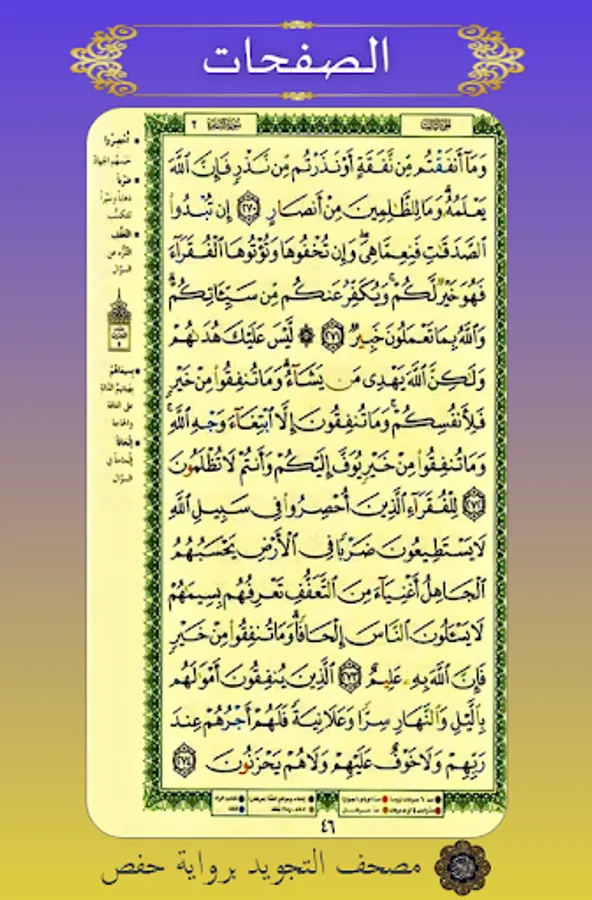 الصفحات
سورة البقرة ٢
وَمَآ أَنفَقْتُم مِّن نَّفَقَةٍ أَوْ نَذَرْتُم مِّن نَّذْرٍ فَإِنَّ ٱللَّهَ
يَعْلَمُهُۥ ۗ وَمَا لِلظَّٰلِمِينَ مِنْ أَنصَارٍ ٢٧٠ إِن تُبْدُوا۟
ٱلصَّدَقَٰتِ فَنِعِمَّا هِىَ ۖ وَإِن تُخْفُوهَا وَتُؤْتُوهَا ٱلْفُقَرَآءَ
فَهُوَ خَيْرٌ لَّكُمْ ۚ وَيُكَفِّرُ عَنكُم مِّن سَيِّـَٔاتِكُمْ ۗ
وَٱللَّهُ بِمَا تَعْمَلُونَ خَبِيرٌ ٢٧١ ۞ لَّيْسَ عَلَيْكَ هُدَىٰهُمْ
وَلَٰكِنَّ ٱللَّهَ يَهْدِى مَن يَشَآءُ ۗ وَمَا تُنفِقُوا۟ مِنْ خَيْرٍ
فَلِأَنفُسِكُمْ ۚ وَمَا تُنفِقُونَ إِلَّا ٱبْتِغَآءَ وَجْهِ ٱللَّهِ ۚ
وَمَا تُنفِقُوا۟ مِنْ خَيْرٍ يُوَفَّ إِلَيْكُمْ وَأَنتُمْ لَا تُظْلَمُونَ
٢٧٢ لِلْفُقَرَآءِ ٱلَّذِينَ أُحْصِرُوا۟ فِى سَبِيلِ ٱللَّهِ
لَا يَسْتَطِيعُونَ ضَرْبًا فِى ٱلْأَرْضِ يَحْسَبُهُمُ
ٱلْجَاهِلُ أَغْنِيَآءَ مِنَ ٱلتَّعَفُّفِ تَعْرِفُهُم بِسِيمَٰهُمْ
لَا يَسْـَٔلُونَ ٱلنَّاسَ إِلْحَافًا ۗ وَمَا تُنفِقُوا۟ مِنْ خَيْرٍ
فَإِنَّ ٱللَّهَ بِهِۦ عَلِيمٌ ٢٧٣ ٱلَّذِينَ يُنفِقُونَ أَمْوَٰلَهُم
بِٱلَّيْلِ وَٱلنَّهَارِ سِرًّا وَعَلَانِيَةً فَلَهُمْ أَجْرُهُمْ عِندَ
رَبِّهِمْ وَلَا خَوْفٌ عَلَيْهِمْ وَلَا هُمْ يَحْزَنُونَ ٢٧٤
أُحصِروا
ضربًا
التعفف
بسيماهم
إلحافًا
٤٦
مصحف التجويد برواية حفص